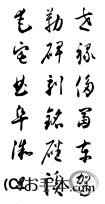 世祿侈富車駕
勒碑刻銘磻溪
奄宅曲阜微旦
(C)お手本.com